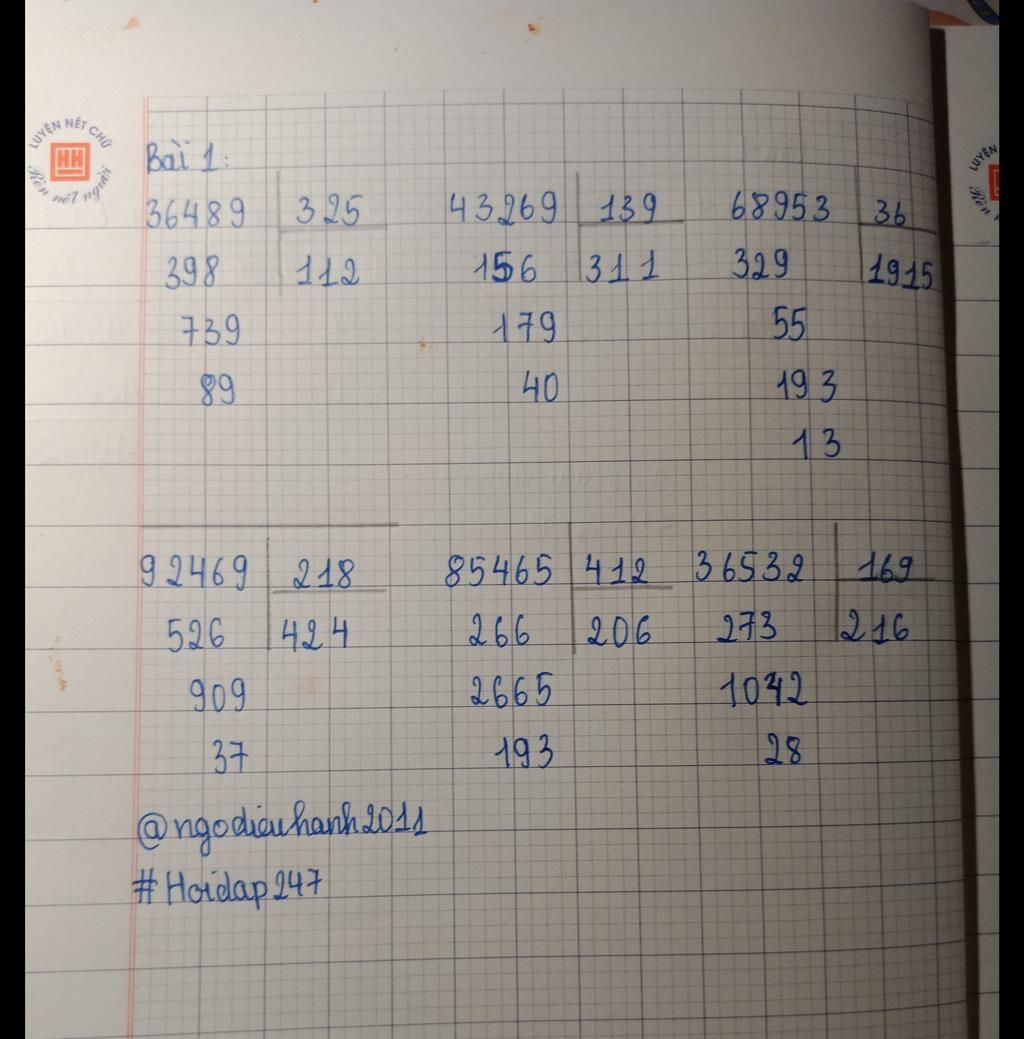 LUYỆN NÉT CHỮ
HH
Rèn nết người
LUYỆN
Bài 1:
36489 325 43269 139 68953 36
398 112 156 311 329 1915
739 179 55
89 40 193
13
92469 218 85465 412 36532 169
526 424 266 206 273 216
909 2665 1042
37 193 28
@ngodieuhanh2011
#Hoidap247